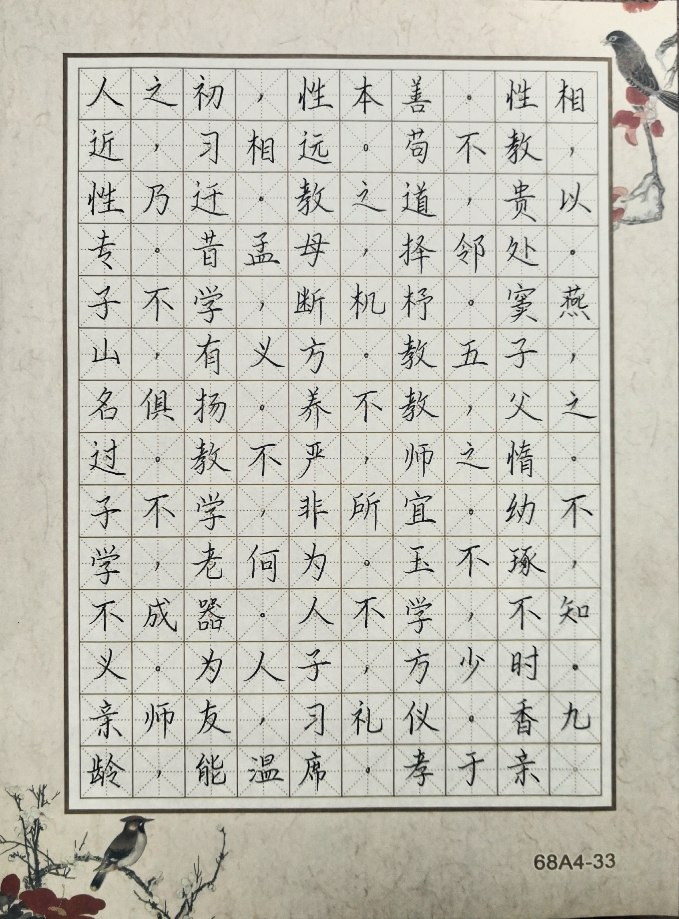 人之初，性本善。性相
近，习相远。苟不教，
性乃迁。教之道，贵以
专。昔孟母，择邻处。
子不学，断机杼。窦燕
山，有义方。教五子，
名俱扬。养不教，父之
过。教不严，师之惰。
子不学，非所宜。幼不
学，老何为。玉不琢，
不成器。人不学，不知
义。为人子，方少时。
亲师友，习礼仪。香九
龄，能温席。孝于亲。
68A4-33